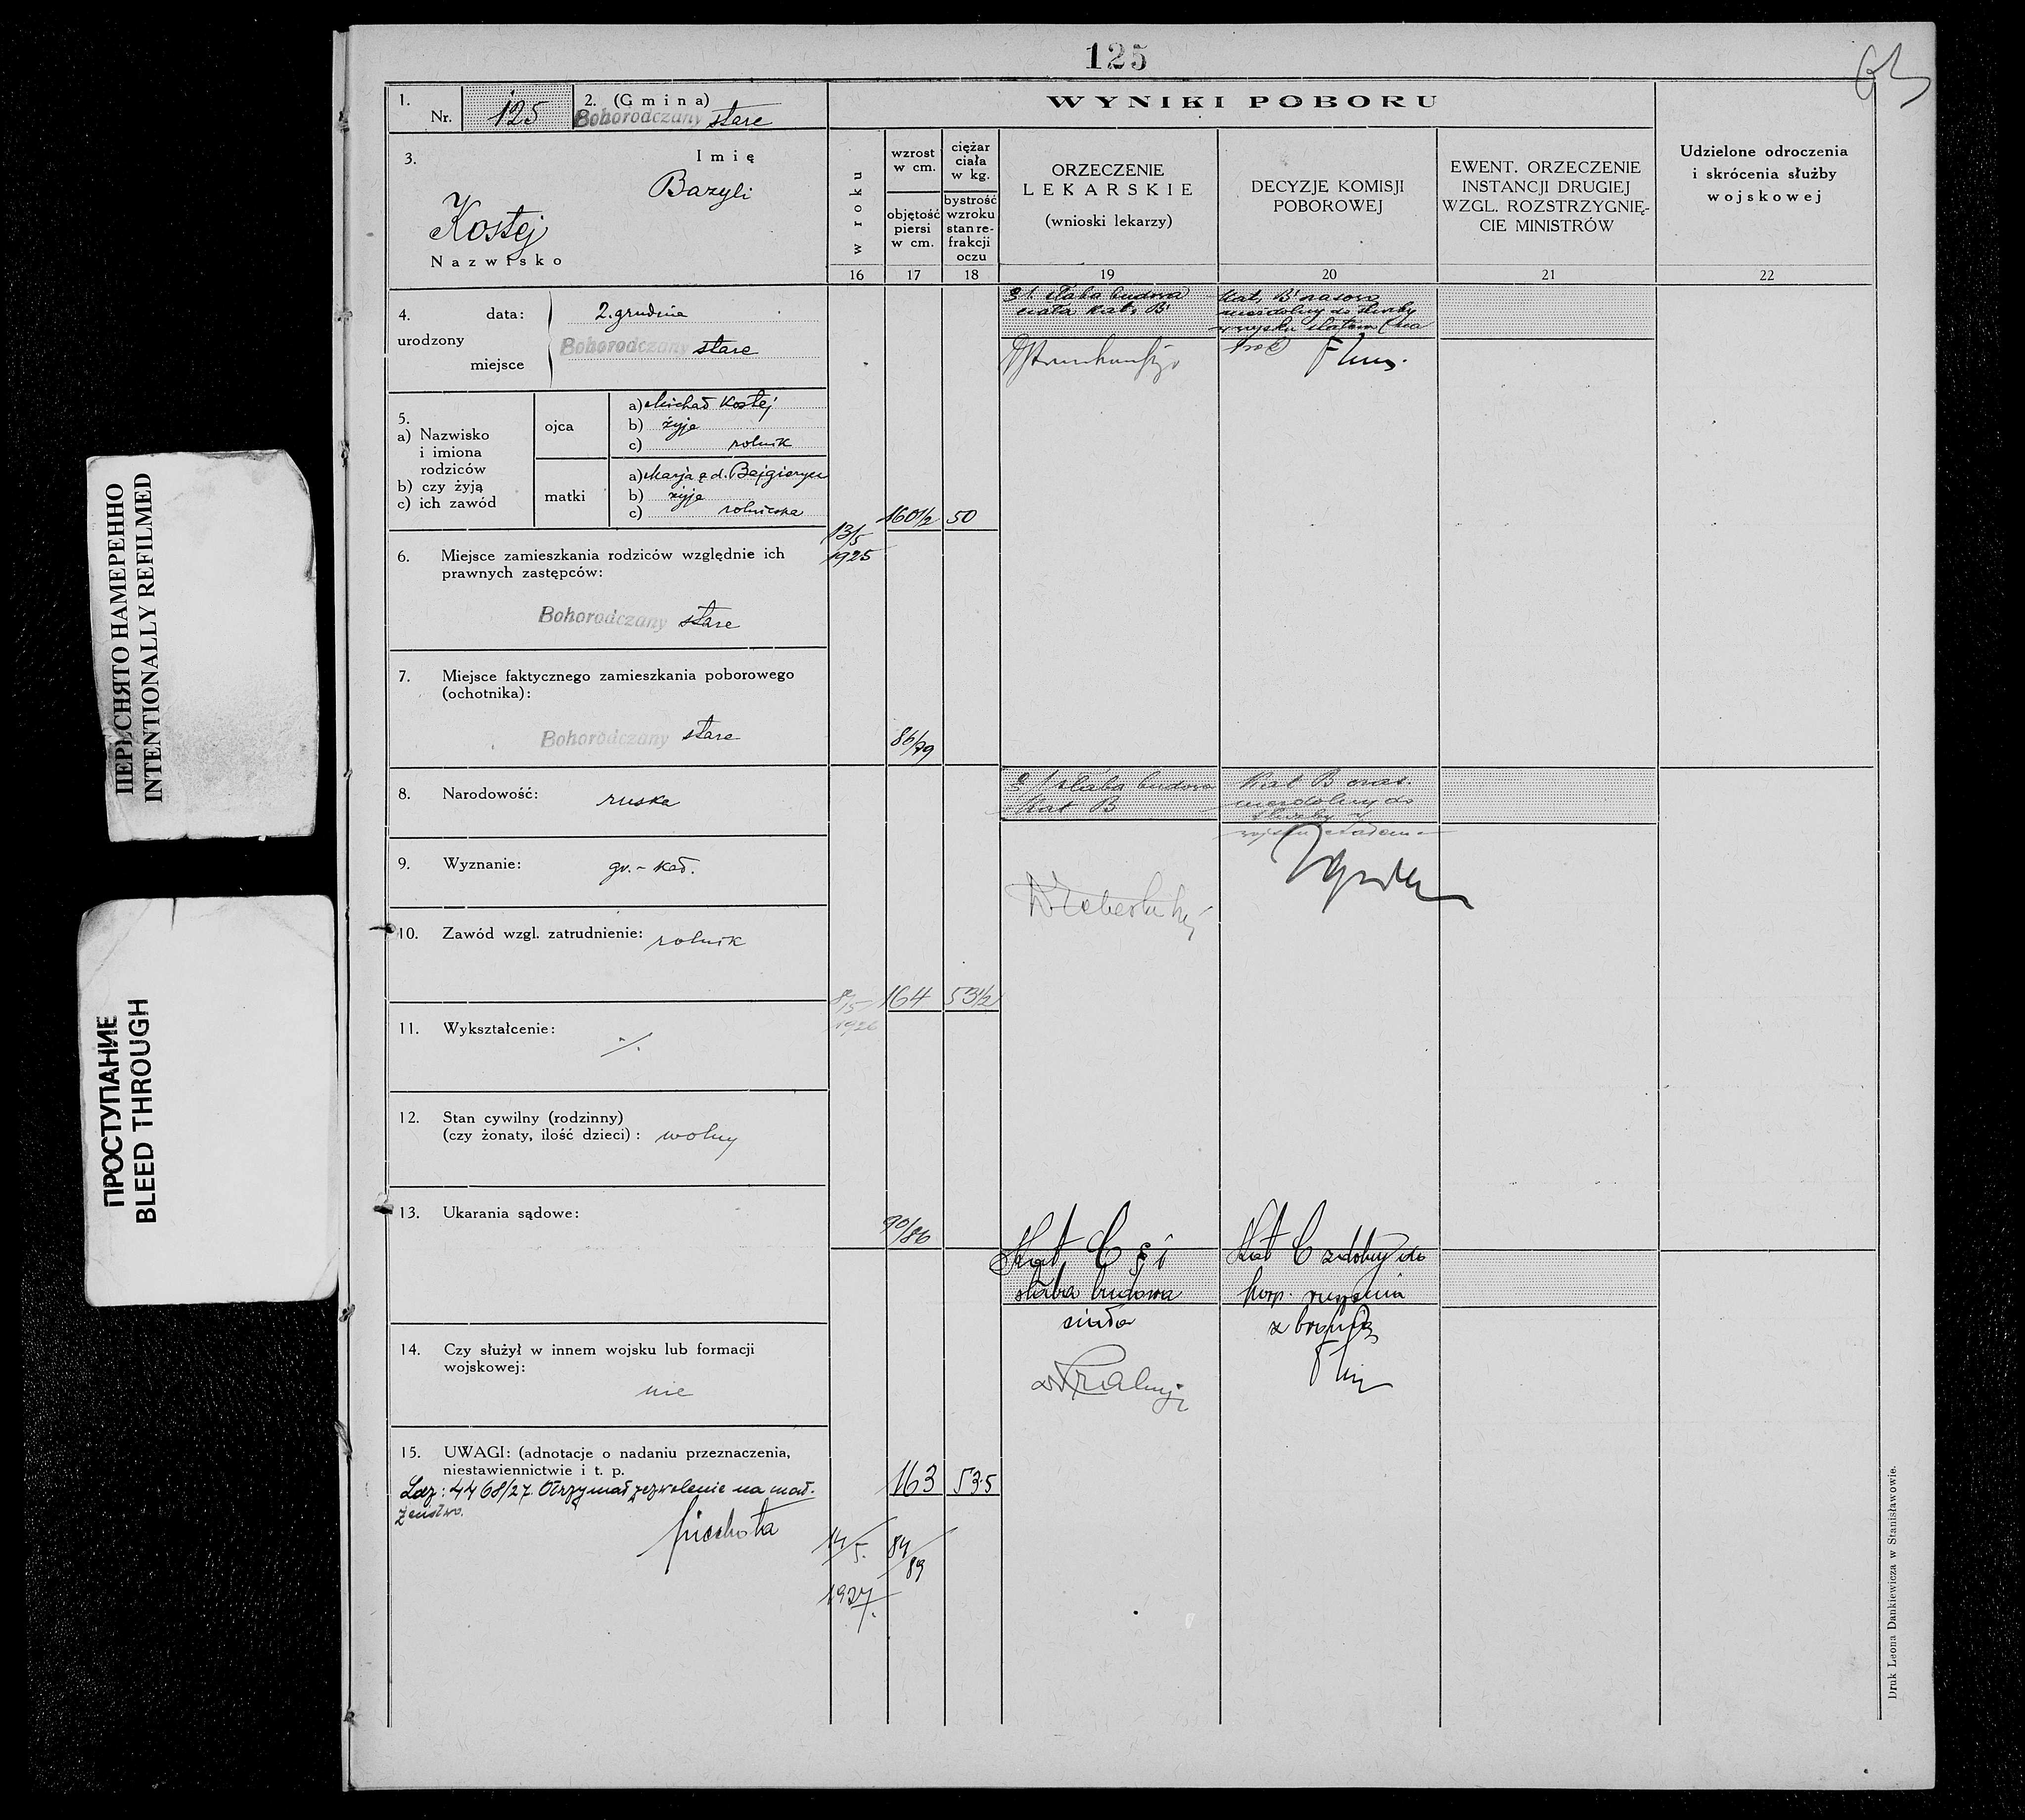 125
1. Nr. 125
2. (Gmina)
Bohorodczany stare
3. Imię
Bazyli
Kostej
Nazwisko
4. urodzony
data: 2. grudnia
miejsce Bohorodczany stare
5.
a) Nazwisko
i imiona
rodziców
b) czy żyją
c) ich zawód
ojca
a) Michał Kostej
b) żyje
c) rolnik
matki
a) Marja z d.
b) żyje
c) rolniczka
6. Miejsce zamieszkania rodziców względnie ich
prawnych zastępców:
Bohorodczany stare
7. Miejsce faktycznego zamieszkania poborowego
(ochotnika):
Bohorodczany stare
8. Narodowość: ruska
9. Wyznanie: gr. - kat.
10. Zawód wzgl. zatrudnienie: rolnik
11. Wykształcenie:
./.
12. Stan cywilny (rodzinny)
(czy żonaty, ilość dzieci): wolny
13. Ukarania sądowe:
14. Czy służył w innem wojsku lub formacji
wojskowej:
nie
15. UWAGI: (adnotacje o nadaniu przeznaczenia,
niestawiennictwie i t. p.
4468/27. Otrzymał zezwolenie na mał-
żeństwo.
piechota
WYNIKI POBORU
w roku
16
wzrost
w cm.
objętość
piersi
w cm.
17
ciężar
ciała
w kg.
bystrość
wzroku
stan re-
frakcji
oczu
18
ORZECZENIE
LEKARSKIE
(wnioski lekarzy)
19
DECYZJE KOMISJI
POBOROWEJ
20
EWENT. ORZECZENIE
INSTANCJI DRUGIEJ
WZGL. ROZSTRZYGNIĘ-
CIE MINISTRÓW
21
Udzielone odroczenia
i skrócenia służby
wojskowej
22
13/5
1925
160 1/2
50
86/79
słaba budowa
ciała kat. B
Kat. B
niezdolny do służby
8/5
1926
164
53 1/2
90/86
słaba budowa
Kat B
Kat B
niezdolny do
służby w
14/5.
1927.
163
53.5
84/89
Kat C
słaba budowa
ciała
Kat C zdolny do
posp. ruszenia
z bronią
Druk Leona Dankiewicza w Stanisławowie.
ПЕРЕСНЯТО НАМЕРЕННО
INTENTIONALLY REFILMED
ПРОСТУПАНИЕ
BLEED THROUGH